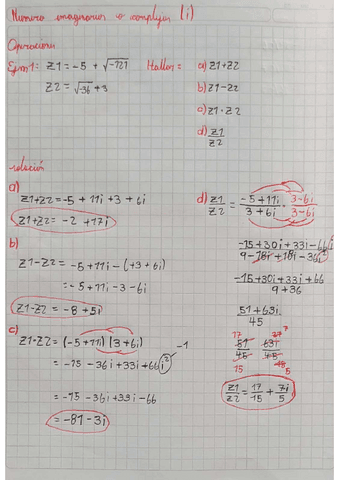 Numeros imaginarios o complejos (i)
Operaciones
Ejm1: Z1 = -5 + √-121 Hallar = a) Z1+Z2
Z2 = √-36 + 3 b) Z1-Z2
c) Z1·Z2
d) Z1/Z2
solución
a)
Z1+Z2 = -5 + 11i + 3 + 6i
Z1+Z2 = -2 + 17i
b)
Z1-Z2 = -5+11i - (+3+6i)
= -5+11i -3-6i
Z1-Z2 = -8 + 5i
c)
Z1·Z2 = (-5+11i) (3+6i)
= -15 -36i +33i +66i² -1
= -15 -36i +33i -66
= -81-3i
d) Z1/Z2 = -5+11i/3+6i · 3-6i/3-6i
-15+30i+33i-66i²/9-18i+18i-36i²
-15+30i+33i+66/9+36
51+63i/45
17 7
51/45 63i/45
15 5
Z1/Z2 = 17/15 + 7i/5